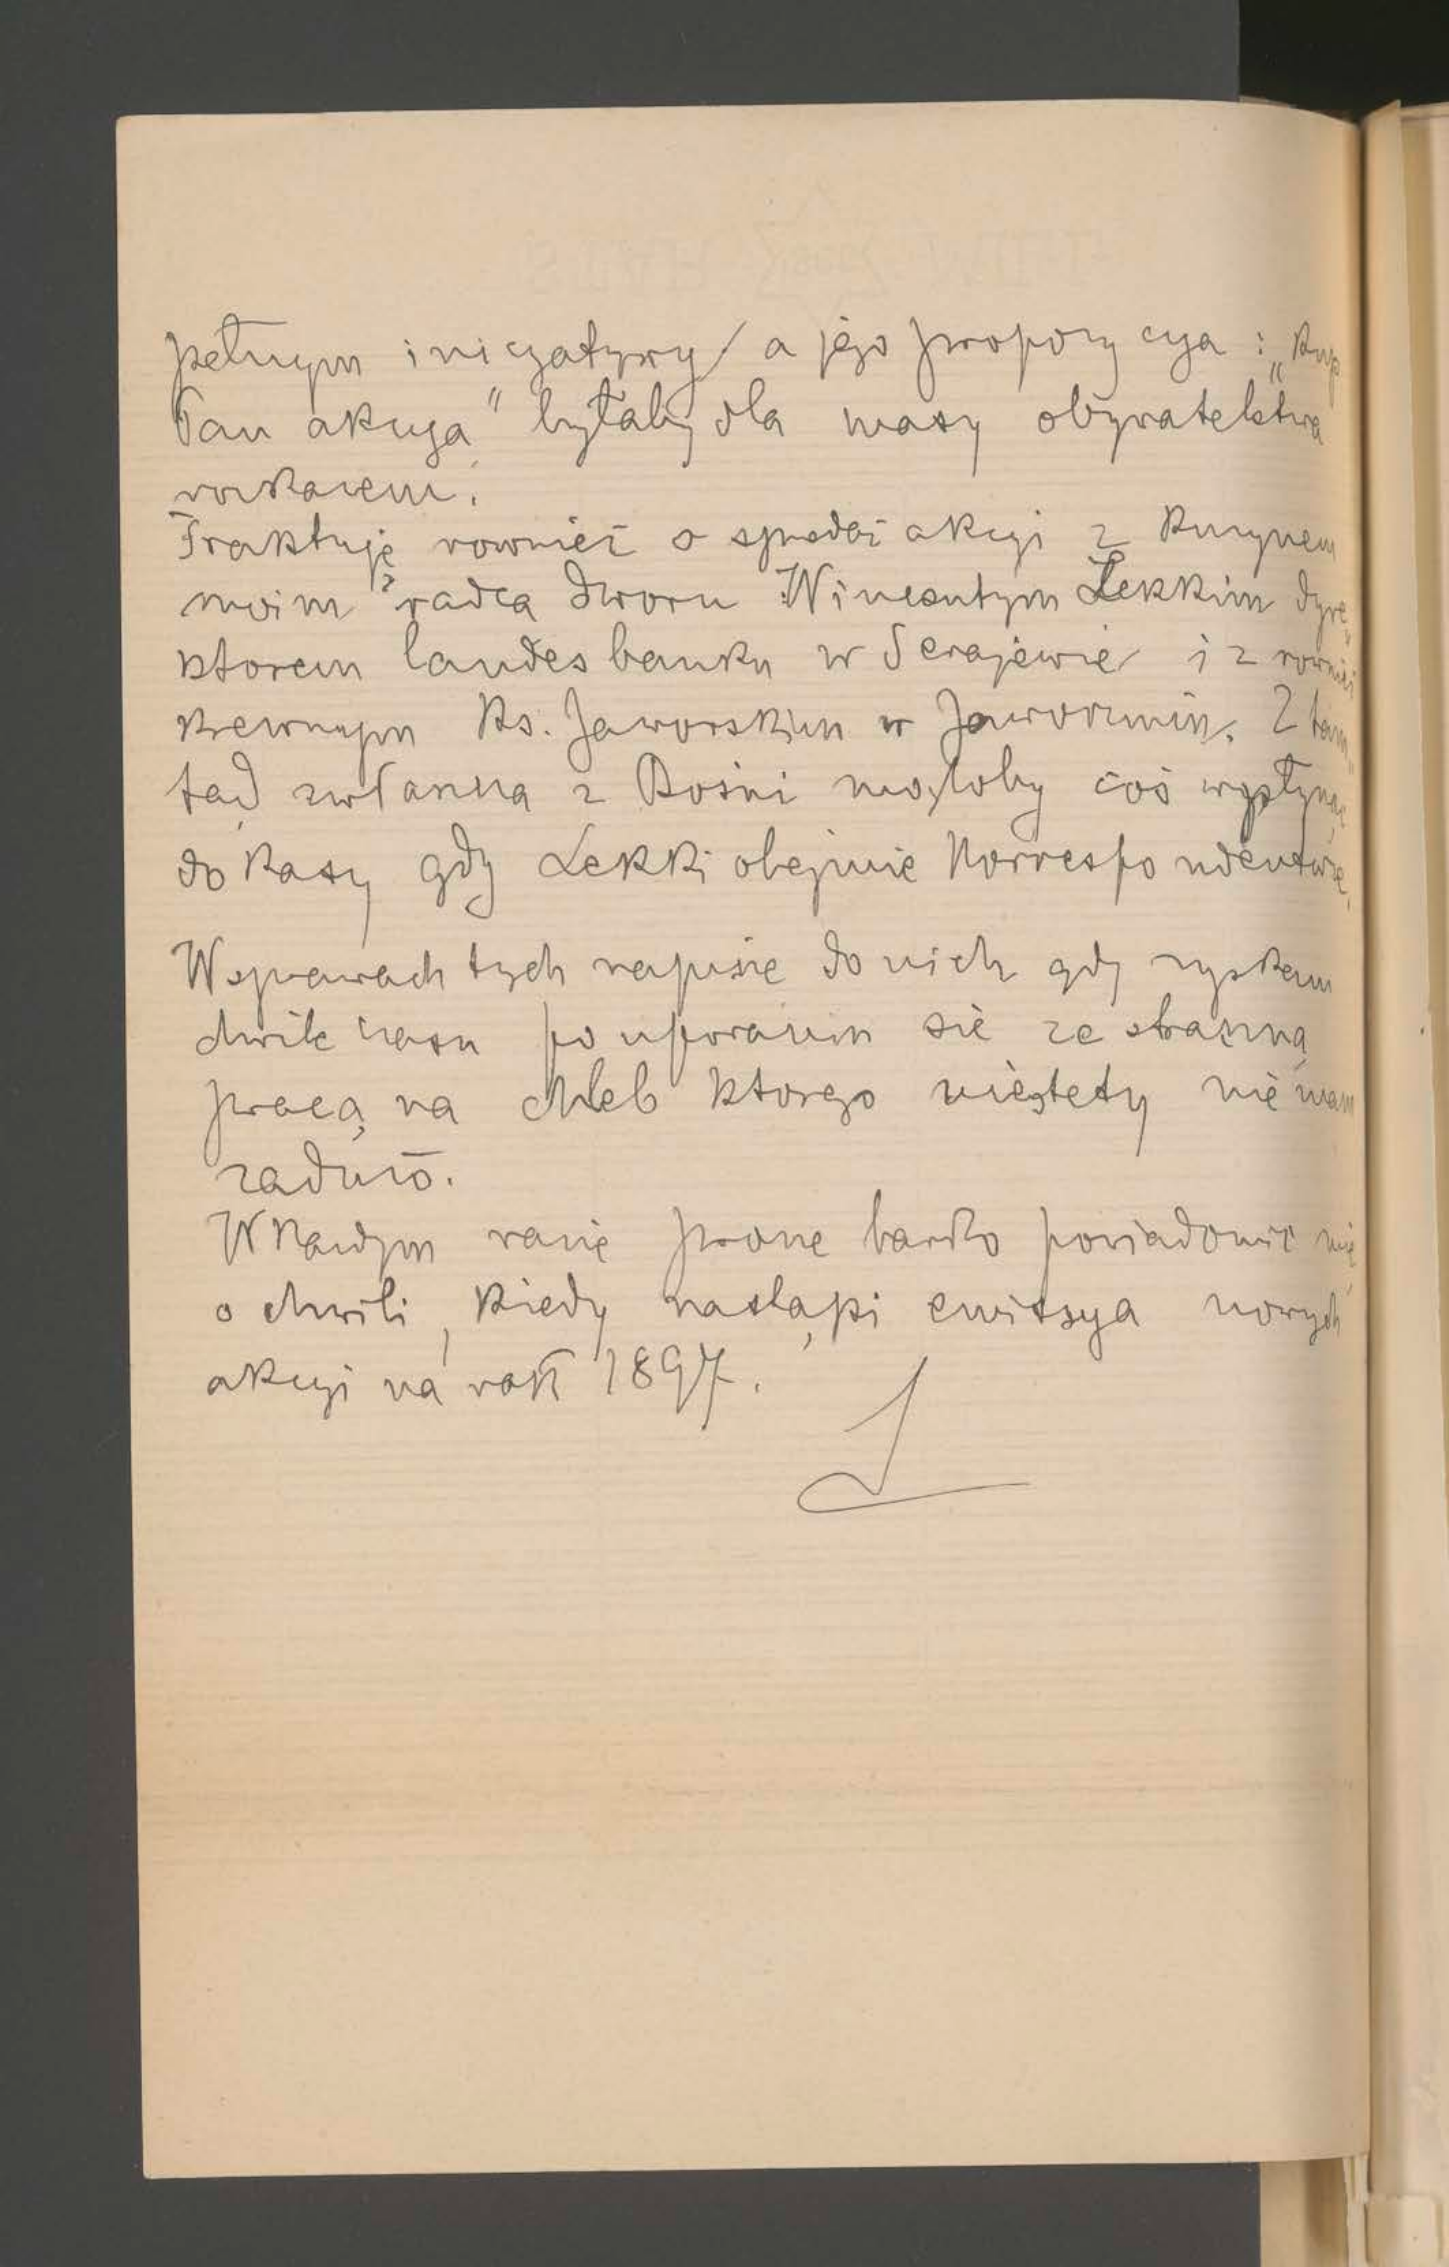 pełnym inicyatywy a jego propozycya: „Kup
Pan akcyą" byłaby dla masy obywatelstwa
rozkazem.
Traktuję rownież o spzedaż akcyi z Kuzynem
moim radcą dworu Wincentym Łekkim dyre„
ktorem landesbanku w Serajewie i z rownież
krewnym Ks. Jaworskim w Jaworzniu. Z tam„
tąd zwłaszcza z Bośni mogłoby coś wypłynąć
do kasy gdy Łekki obejmie Korrespondenturę.
W sprawach tych napiszę do nich gdy zyskam
chwilę czasu po uporaniu się ze straszną
pracą na chleb ktorego niestety nie mam
zadużo.
W Każdym razie proszę bardzo powiadomić mię
o chwili, kiedy nastąpi emissya nowych
akcyi na rok 1897.